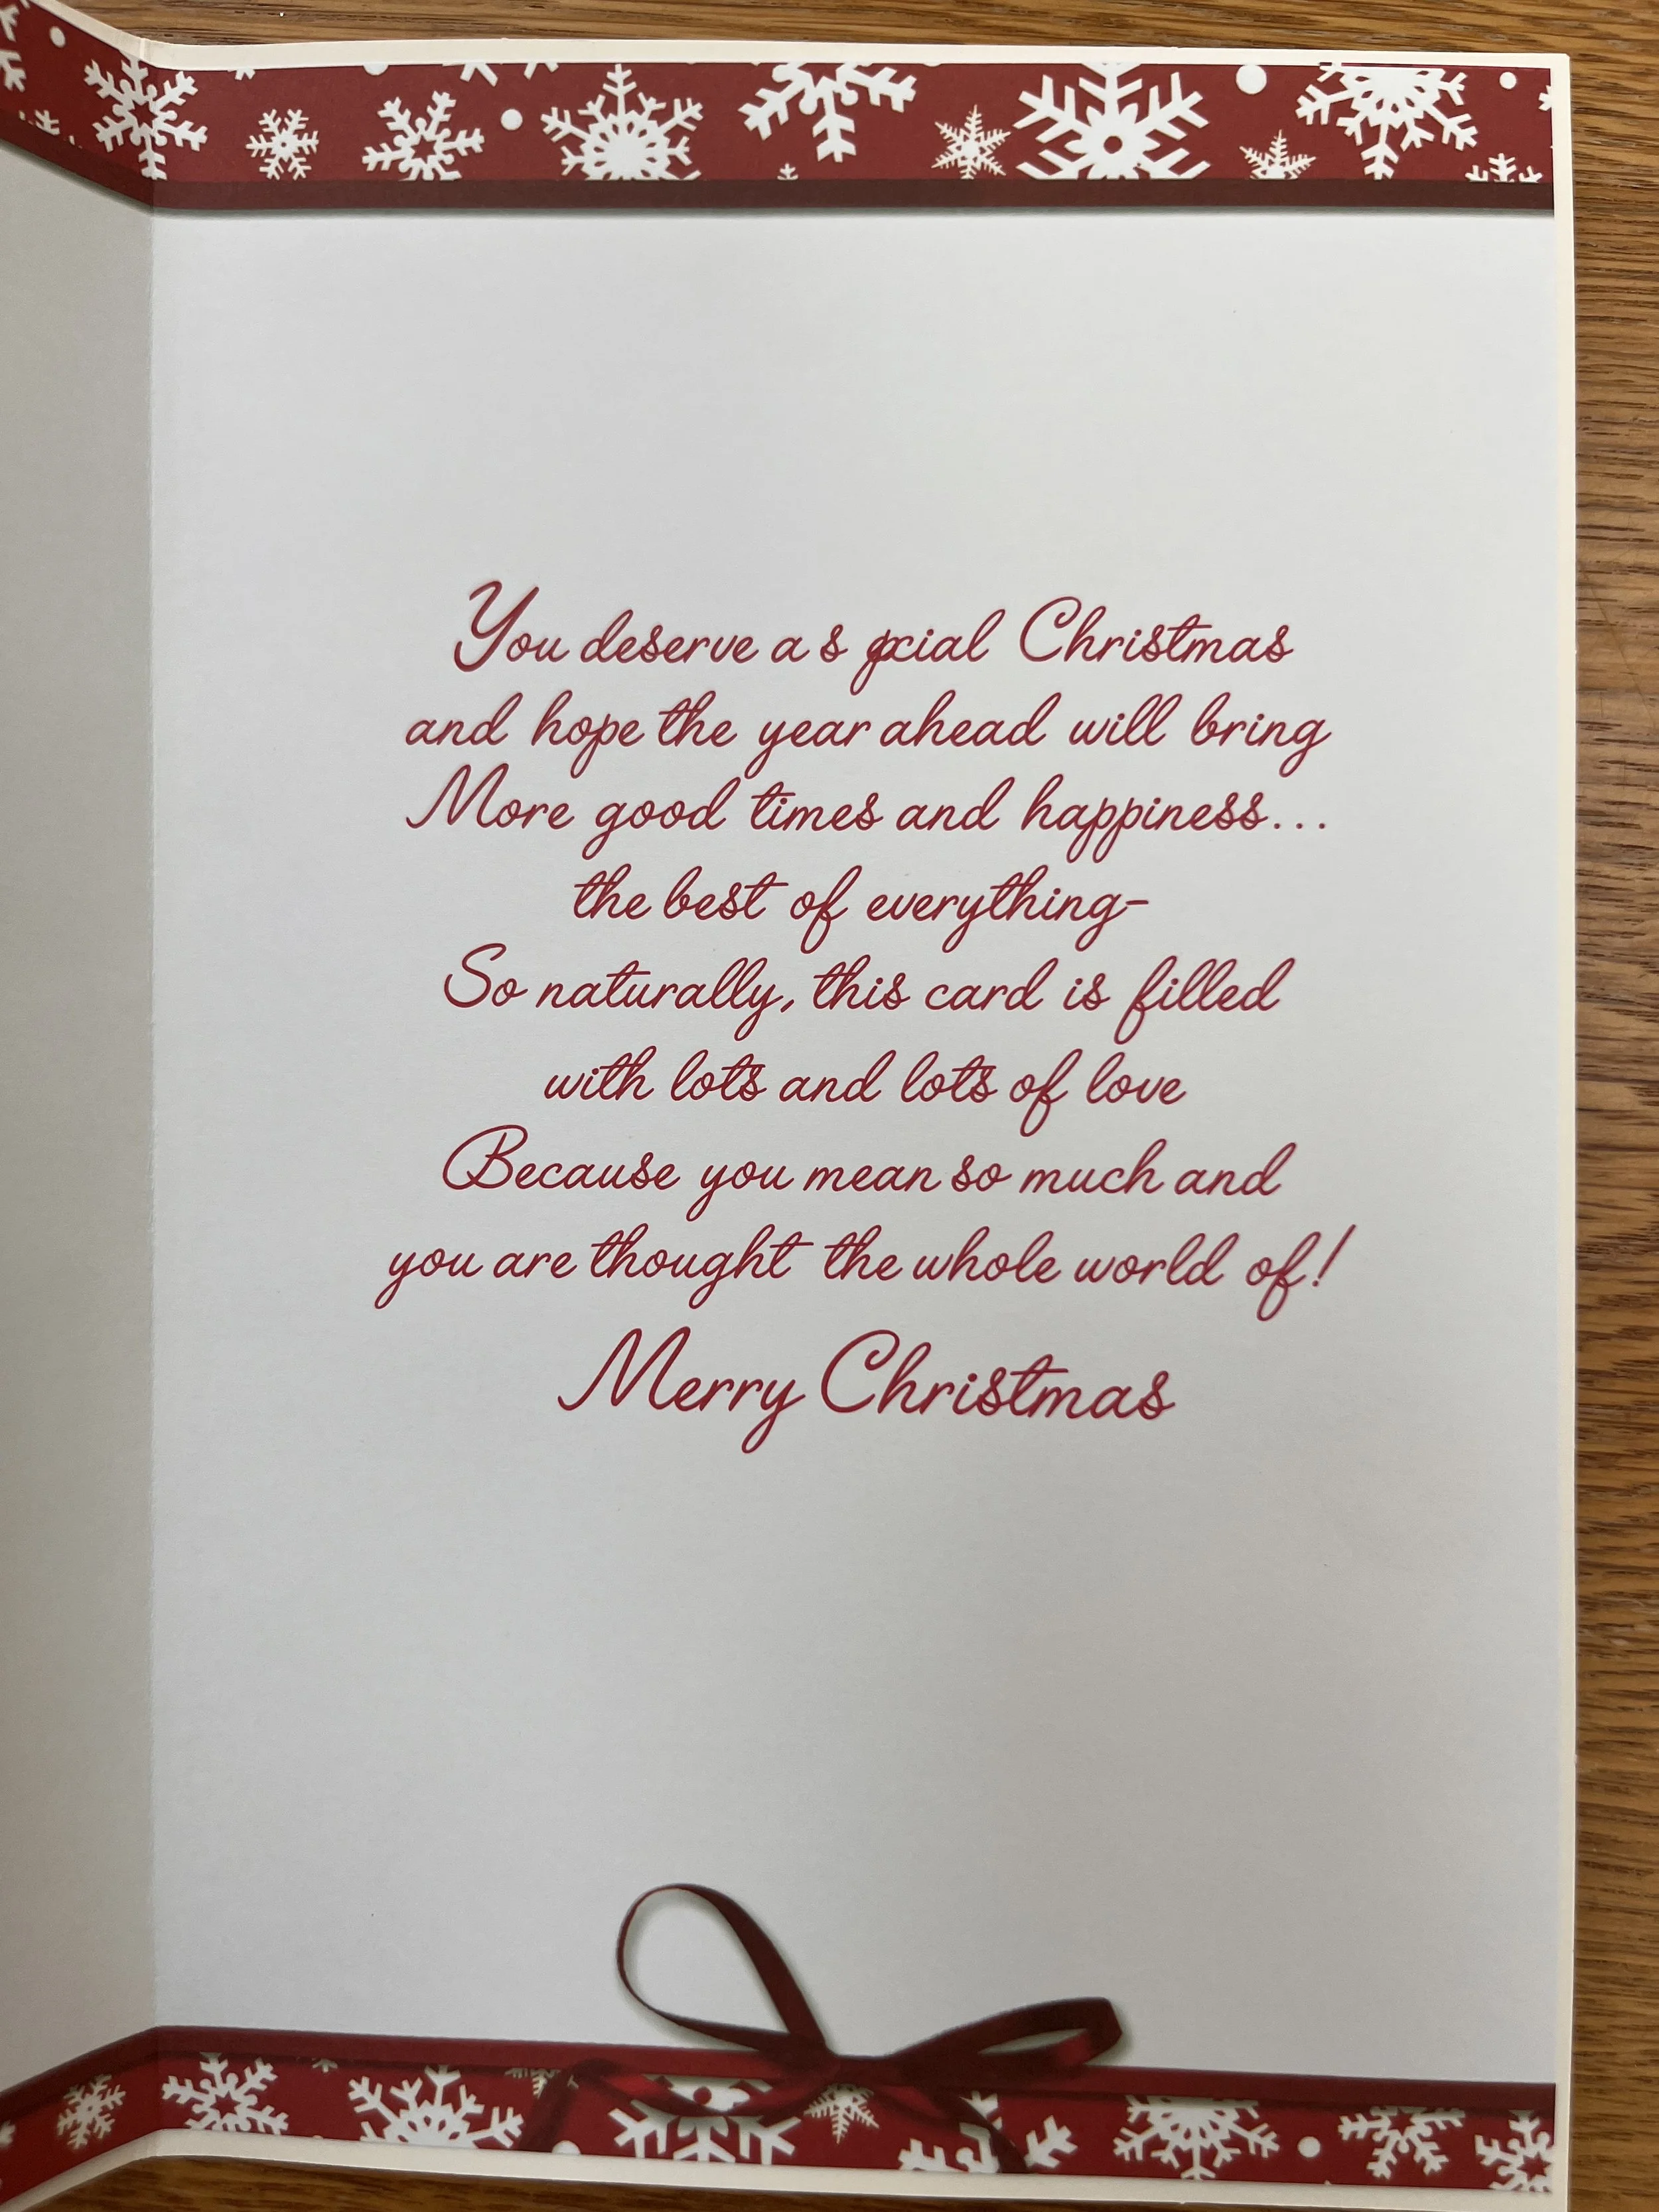 You deserve a special Christmas
and hope the year ahead will bring
More good times and happiness...
the best of everything-
So naturally, this card is filled
with lots and lots of love
Because you mean so much and
you are thought the whole world of!
Merry Christmas